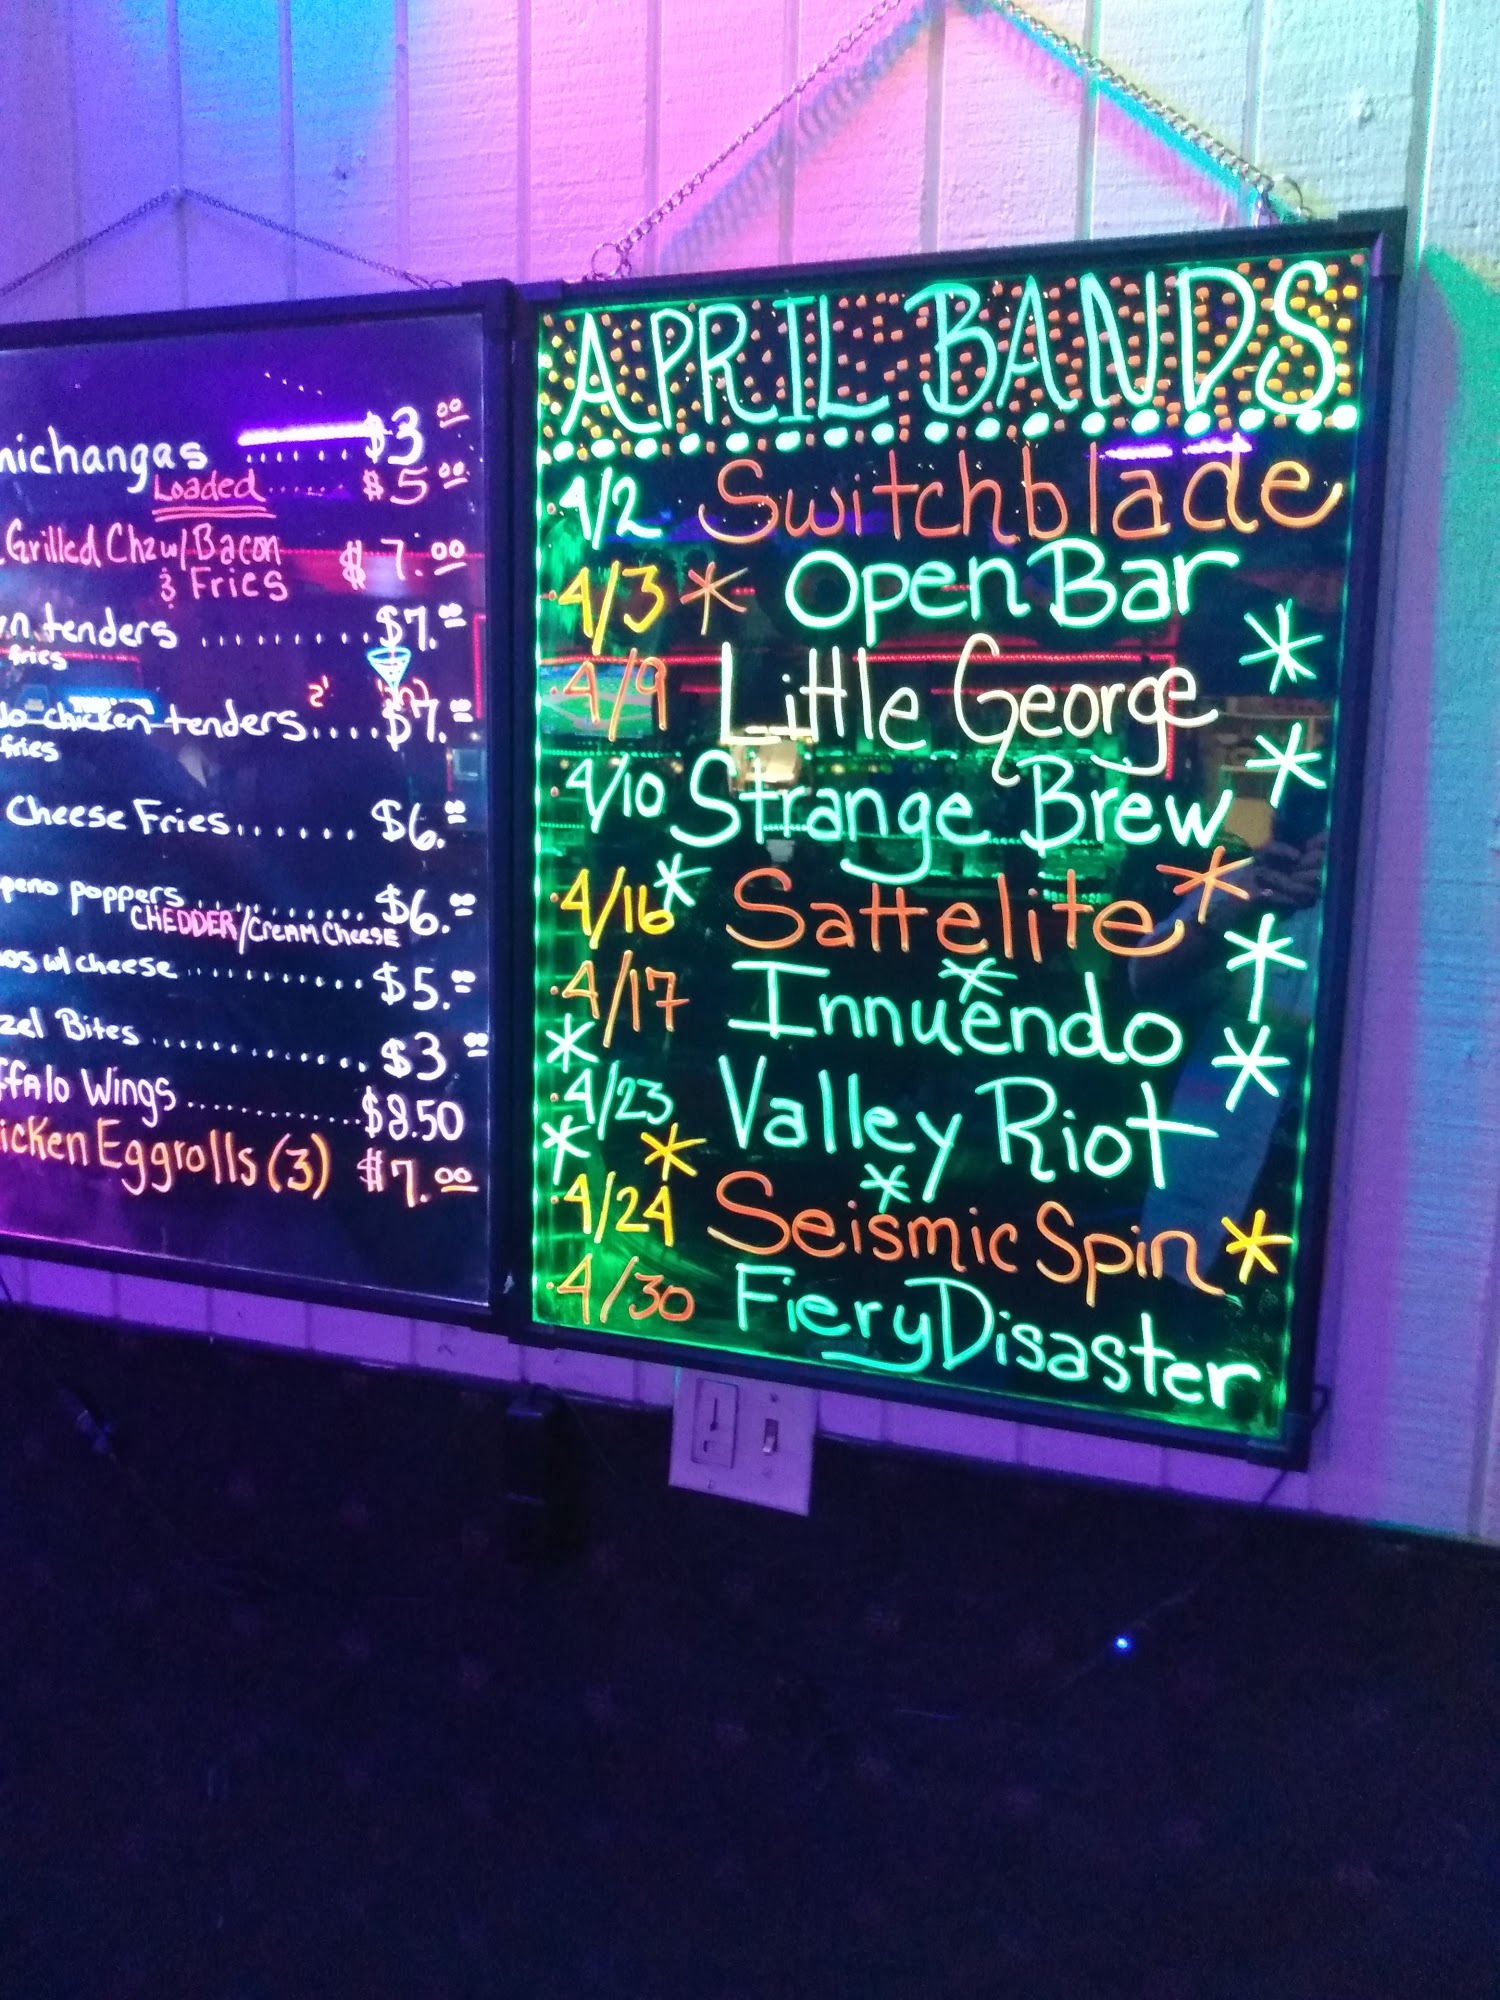 michangas ...... $3.00
Loaded ..... $5.00
Grilled Chz w/ Bacon $7.00
& Fries
tenders ......... $7.00
fries
chicken tenders .... $7.00
fries
Cheese Fries ...... $6.00
peno poppers ............ $6.00
CHEDDER/CREAM CHEESE
os w/ cheese ........... $5.00
zel Bites ............. $3.00
ffalo Wings ............ $8.50
icken Eggrolls (3) $7.00
APRIL BANDS
4/2 Switchblade
4/3 * Open Bar
4/9 Little George *
4/10 Strange Brew *
4/16 * Sattelite *
4/17 Innuendo *
4/23 Valley Riot *
4/24 Seismic Spin *
4/30 Fiery Disaster